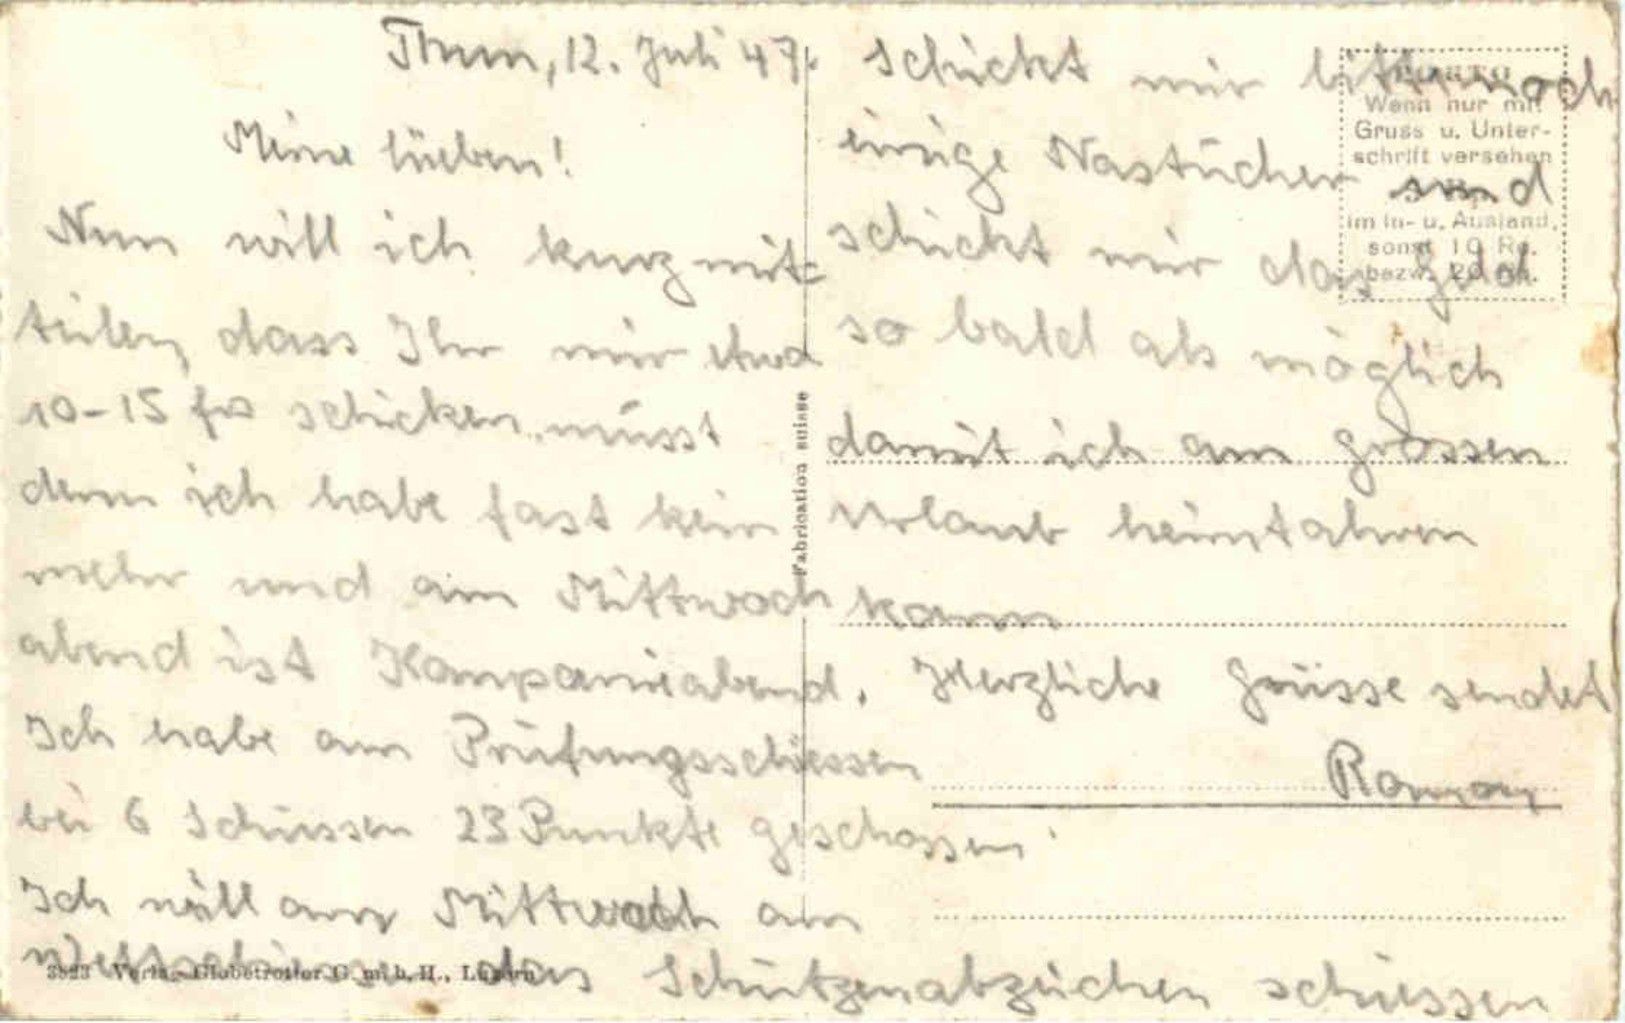 Thun, 12. Juli 47.
Meine lieben!
Nun will ich kurz mit=
teilen, dass Ihr mir etwa
10-15 frs schicken müsst
denn ich habe fast kein
mehr und am Mittwoch
abend ist Kompanieabend.
Ich habe am Prüfungsschiessen
bei 6 Schüssen 23 Punkte geschossen.
Ich will am Mittwoch am
Wettschiessen das Schützenabzeichen schiessen
schickt mir bitte noch
einige Nastücher und
schickt mir das Geld
so bald als möglich
damit ich am grossen
Urlaub heimfahren
kann
Herzliche Grüsse sendet
Roman
PORTO
Wenn nur mit
Gruss u. Unter-
schrift versehen
im In- u. Ausland,
sonst 10 Rp.
bezw. 20 Rp.
Fabrication suisse
3823 Verlag Globetrotter G. m. b. H., Luzern